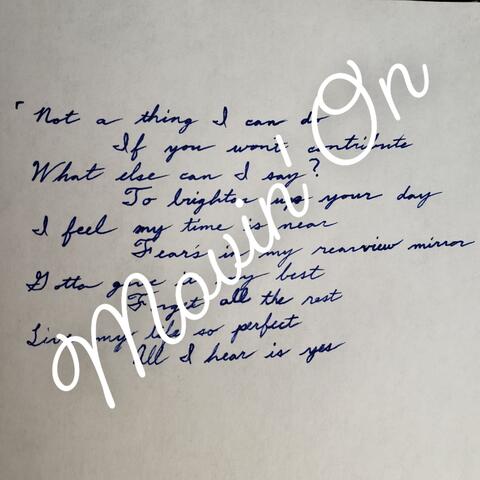 "Not a thing I can do
If you won't contribute
What else can I say?
To brighten up your day
I feel my time is near
Fear's in my rearview mirror
Gotta give it my best
Forget all the rest
Live my life so perfect
All I hear is yes
Movin' On